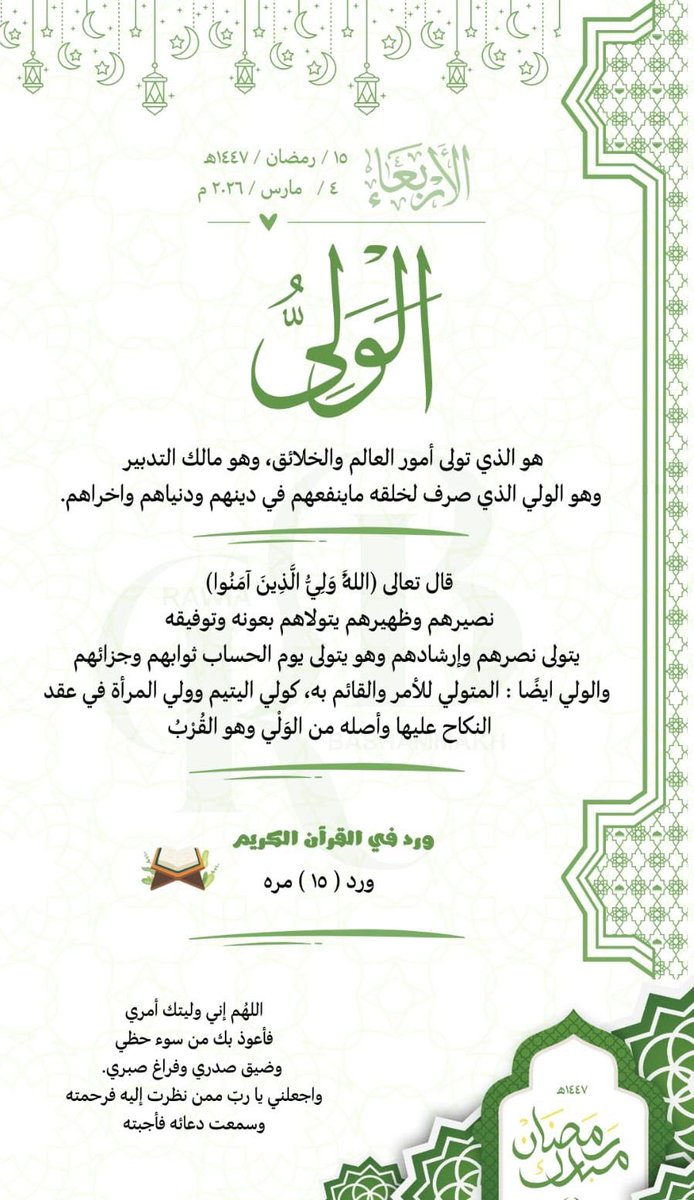 الأربعاء
١٥ / رمضان / ١٤٤٧هـ
٤ / مارس / ٢٠٢٦ م
الوَلِىُّ
هو الذي تولى أمور العالم والخلائق، وهو مالك التدبير
وهو الولي الذي صرف لخلقه ماينفعهم في دينهم ودنياهم واخراهم.
قال تعالى (اللهُ وَلِيُّ الَّذِينَ آمَنُوا)
نصيرهم وظهيرهم يتولاهم بعونه وتوفيقه
يتولى نصرهم وإرشادهم وهو يتولى يوم الحساب ثوابهم وجزائهم
والولي ايضًا : المتولي للأمر والقائم به، كولي اليتيم وولي المرأة في عقد
النكاح عليها وأصله من الوَلْي وهو القُرْبُ
ورد في القرآن الكريم
ورد ( ١٥ ) مره
اللهُم إني وليتك أمري
فأعوذ بك من سوء حظي
وضيق صدري وفراغ صبري.
واجعلني يا ربّ ممن نظرت إليه فرحمته
وسمعت دعائه فأجبته
١٤٤٧هـ
رمضان
مبارك